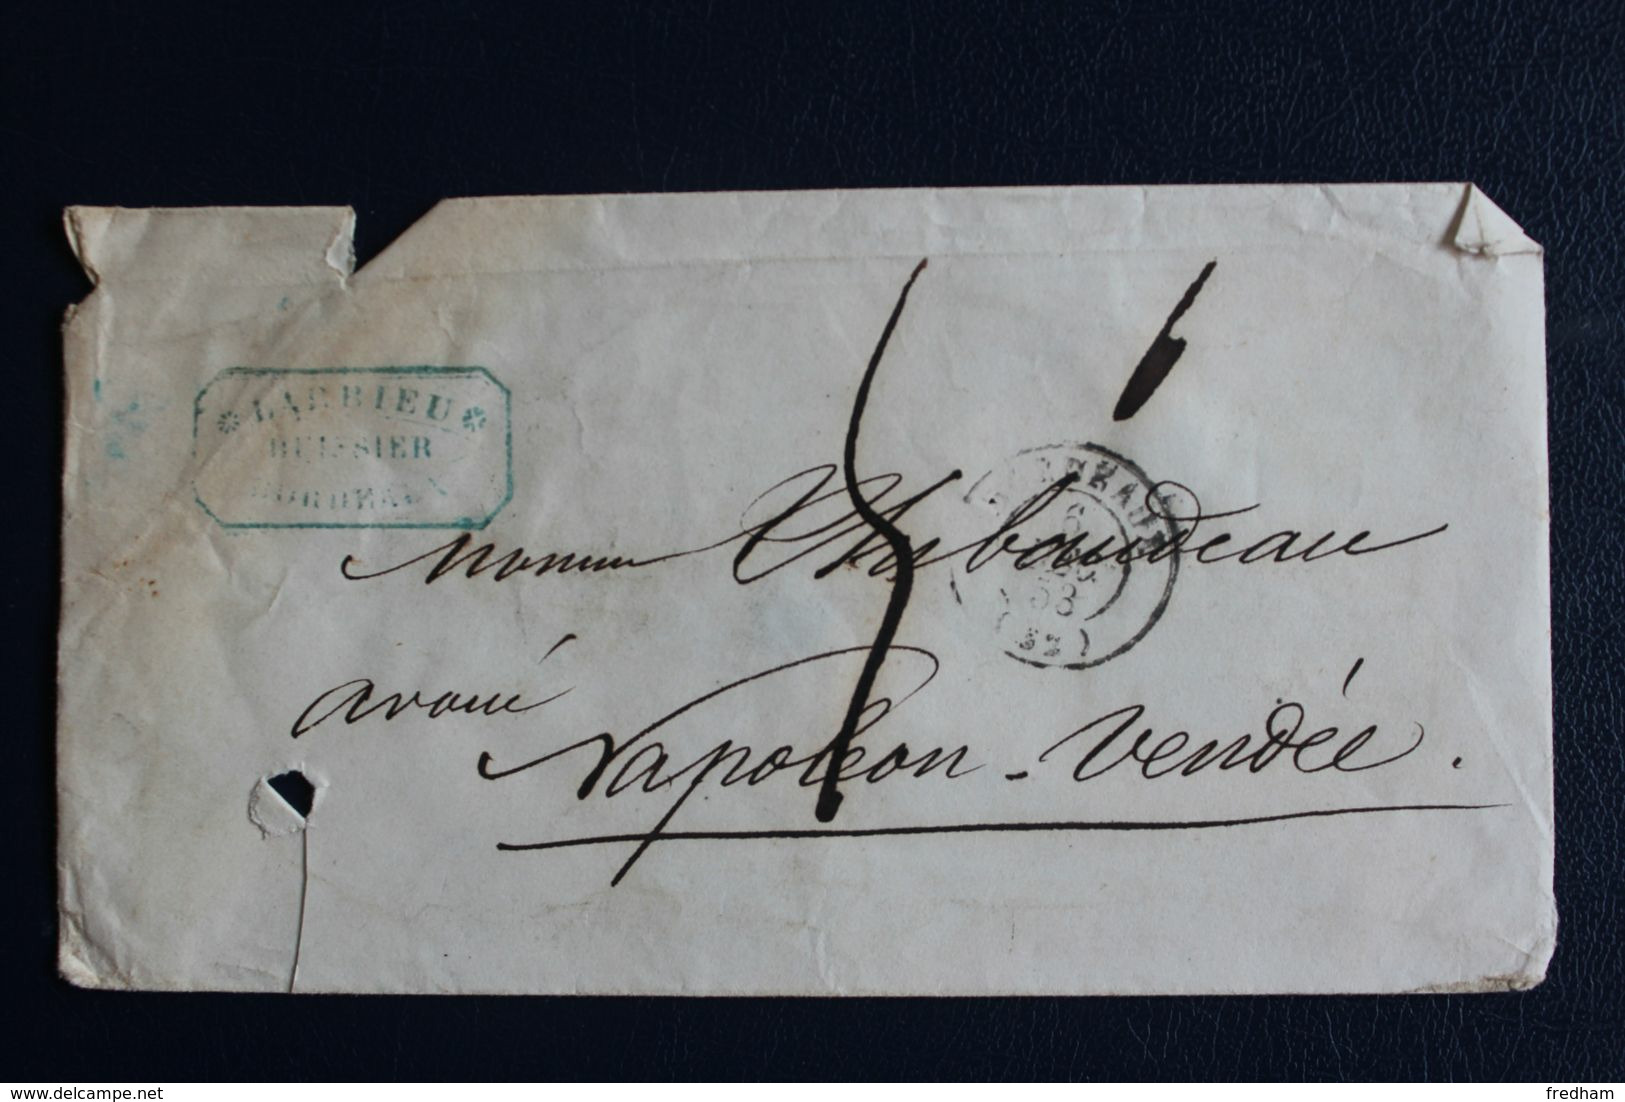 LARRIEU
HUISSIER
BORDEAUX
BORDEAUX
6
58
(32)
Monsieur Thibaudeau
avoué
Napoléon-Vendée.
delcampe.net
fredham